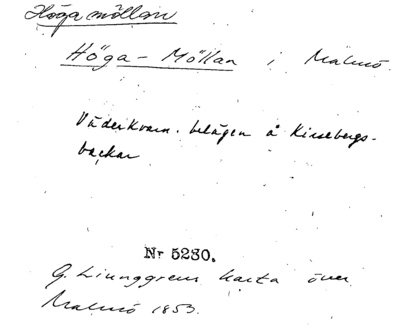 Höga möllan
Höga-Möllan i Malmö.
Väderkvarn. belägen å Kirsebergs-
backar
Nr 5230.
G. Ljunggrens karta över
Malmö 1853.